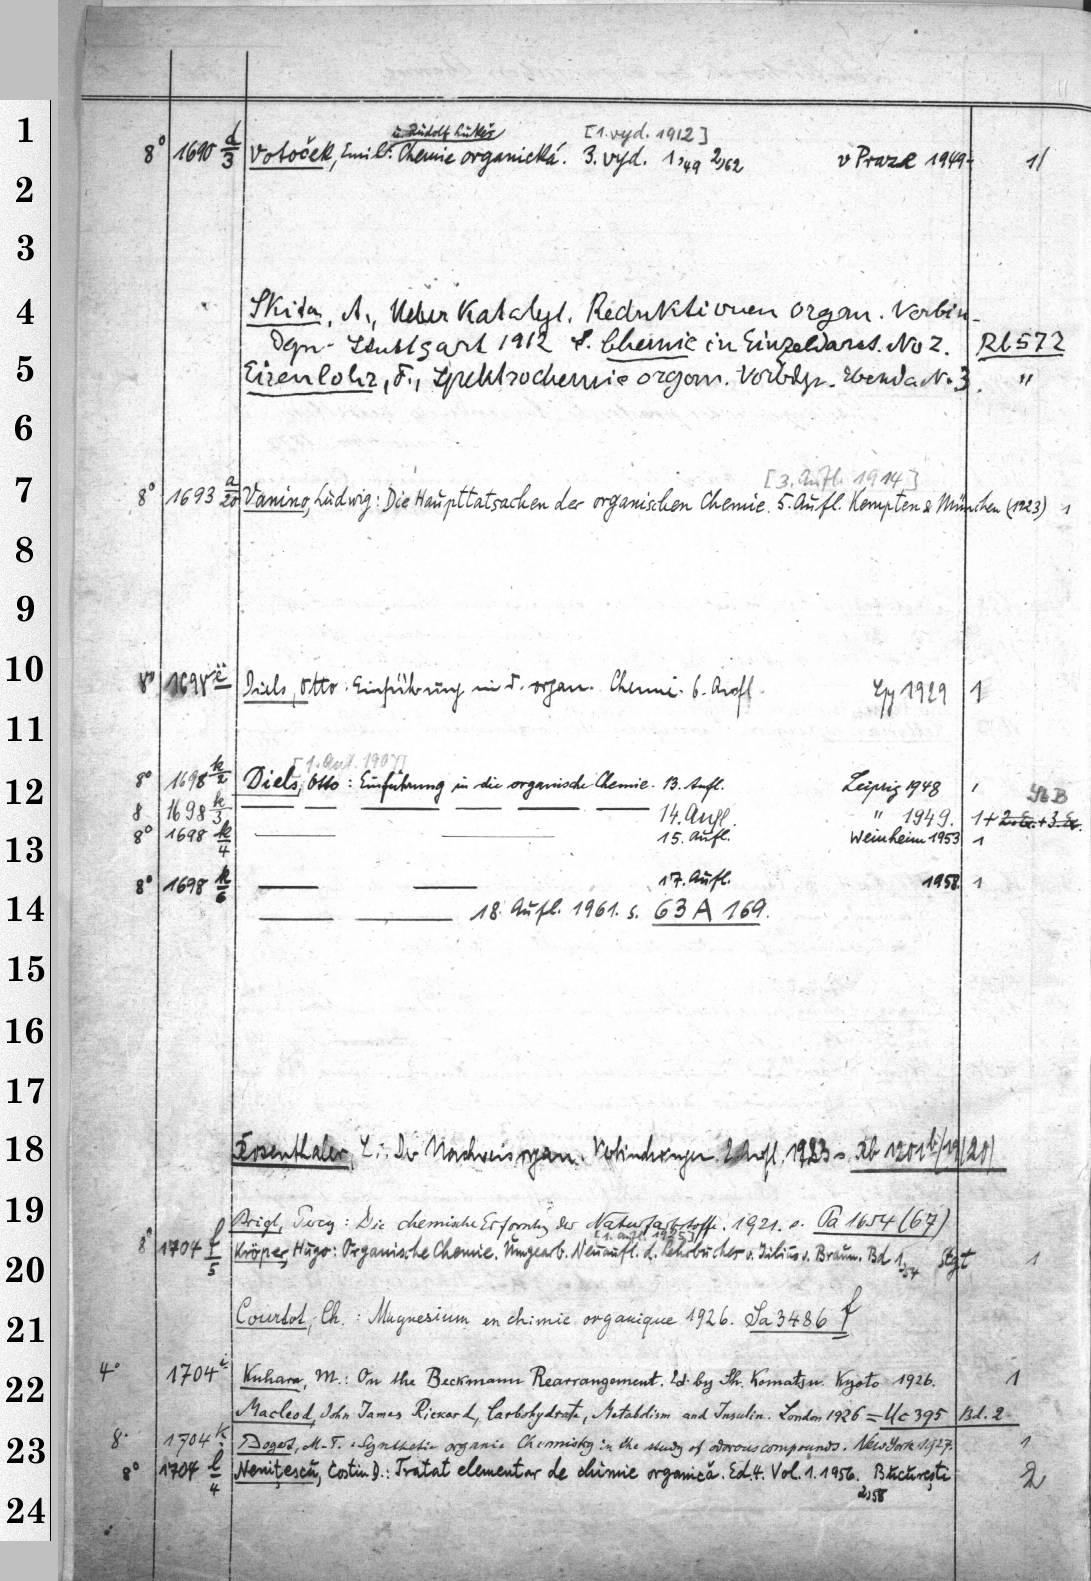 u. Rudolf Lukeš [1. vyd. 1912]
1 8° 1690 d/3 Votoček, Emil: Chemie organická. 3. vyd. 1,49 2,62 v Praze 1949- 1/
2
3
4 Skita, A., Ueber Katalyt. Reduktionen organ. Verbin-
dgn. Stuttgart 1912 s. Chemie in Einzeldarst. No 2. Rb 572
5 Eisenlohr, F., Spektrochemie organ. Verbdgn. Ebenda No. 3. "
6
[3. Aufl. 1914]
7 8° 1693 a/20 Vanino, Ludwig: Die Haupttatsachen der organischen Chemie. 5. Aufl. Kempten & München (1923) 1
8
9
10 8° 1698 Diels, Otto: Einführung in d. organ. Chemie. 6. Aufl. Lpz 1929 1
11
[1. Aufl. 1907]
12 8° 1698 k/2 Diels, Otto: Einführung in die organische Chemie. 13. Aufl. Leipzig 1948 1
8 1698 k/3 — — — — — — 14. Aufl. " 1949. 1 + 2. Ex. + 3. Ex.
13 8° 1698 k/4 — — 15. Aufl. Weinheim 1953 1
8° 1698 k/6 — — 17. Aufl. 1958. 1
14 — — 18. Aufl. 1961. s. 63 A 169.
15
16
17
18 Rosenthaler, L.: Der Nachweis organ. Verbindungen. 2. Aufl. 1923 s. Rb 1201 b/19(20)
19 Brigl, Percy: Die chemische Erforschg der Naturfarbstoffe. 1921. s. Pa 1654 (67)
[1. Aufl. 1925]
20 8° 1704 f/5 Kröper, Hugo: Organische Chemie. Umgearb. Neuaufl. d. Lehrbuches v. Julius v. Braun. Bd 1,54 Stgt 1
21 Courtot, Ch.: Magnesium en chimie organique 1926. Sa 3486 f
22 4° 1704 i Kuhara, M.: On the Beckmann Rearrangement. Ed. by Sh. Komatsu. Kyoto 1926. 1
Macleod, John James Rickard, Carbohydrate, Metabolism and Insulin. London 1926 = Uc 395 Bd. 2
23 8° 1704 k Bogert, M. T.: Synthetic organic Chemistry in the study of odorous compounds. New York 1927. 1
8° 1704 l/4 Neniţescu, Costin D.: Tratat elementar de chimie organică. Ed. 4. Vol. 1. 1956. Bucureşti 2
2,58
24